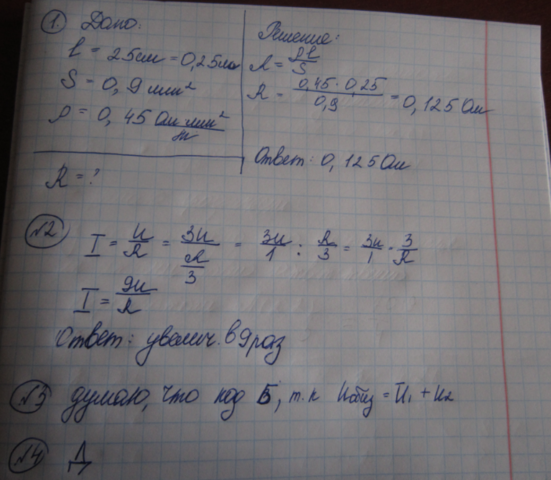 ① Дано:
l = 25см = 0,25м
S = 0,9 мм²
ρ = 0,45 Ом мм²/м
R = ?
Решение:
R = ρl/S
R = 0,45·0,25/0,9 = 0,125 Ом
Ответ: 0,125 Ом
№2 I = U/R = 3U/(R/3) = 3U/1 : R/3 = 3U/1 · 3/R
I = 9U/R
Ответ: увелич. в 9 раз
№3 думаю, что под Б, т.к Uобщ = U₁ + U₂
№4 Д